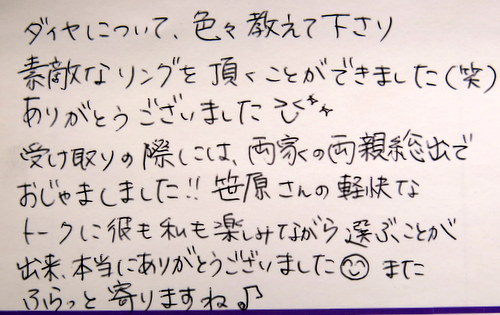 ダイヤについて、色々教えて下さり
素敵なリングを頂くことができました(笑)
ありがとうございました
受け取りの際には、両家の両親総出で
おじゃましました!! 笹原さんの軽快な
トークに彼も私も楽しみながら選ぶことが
出来、本当にありがとうございました☺ また
ふらっと寄りますね♪